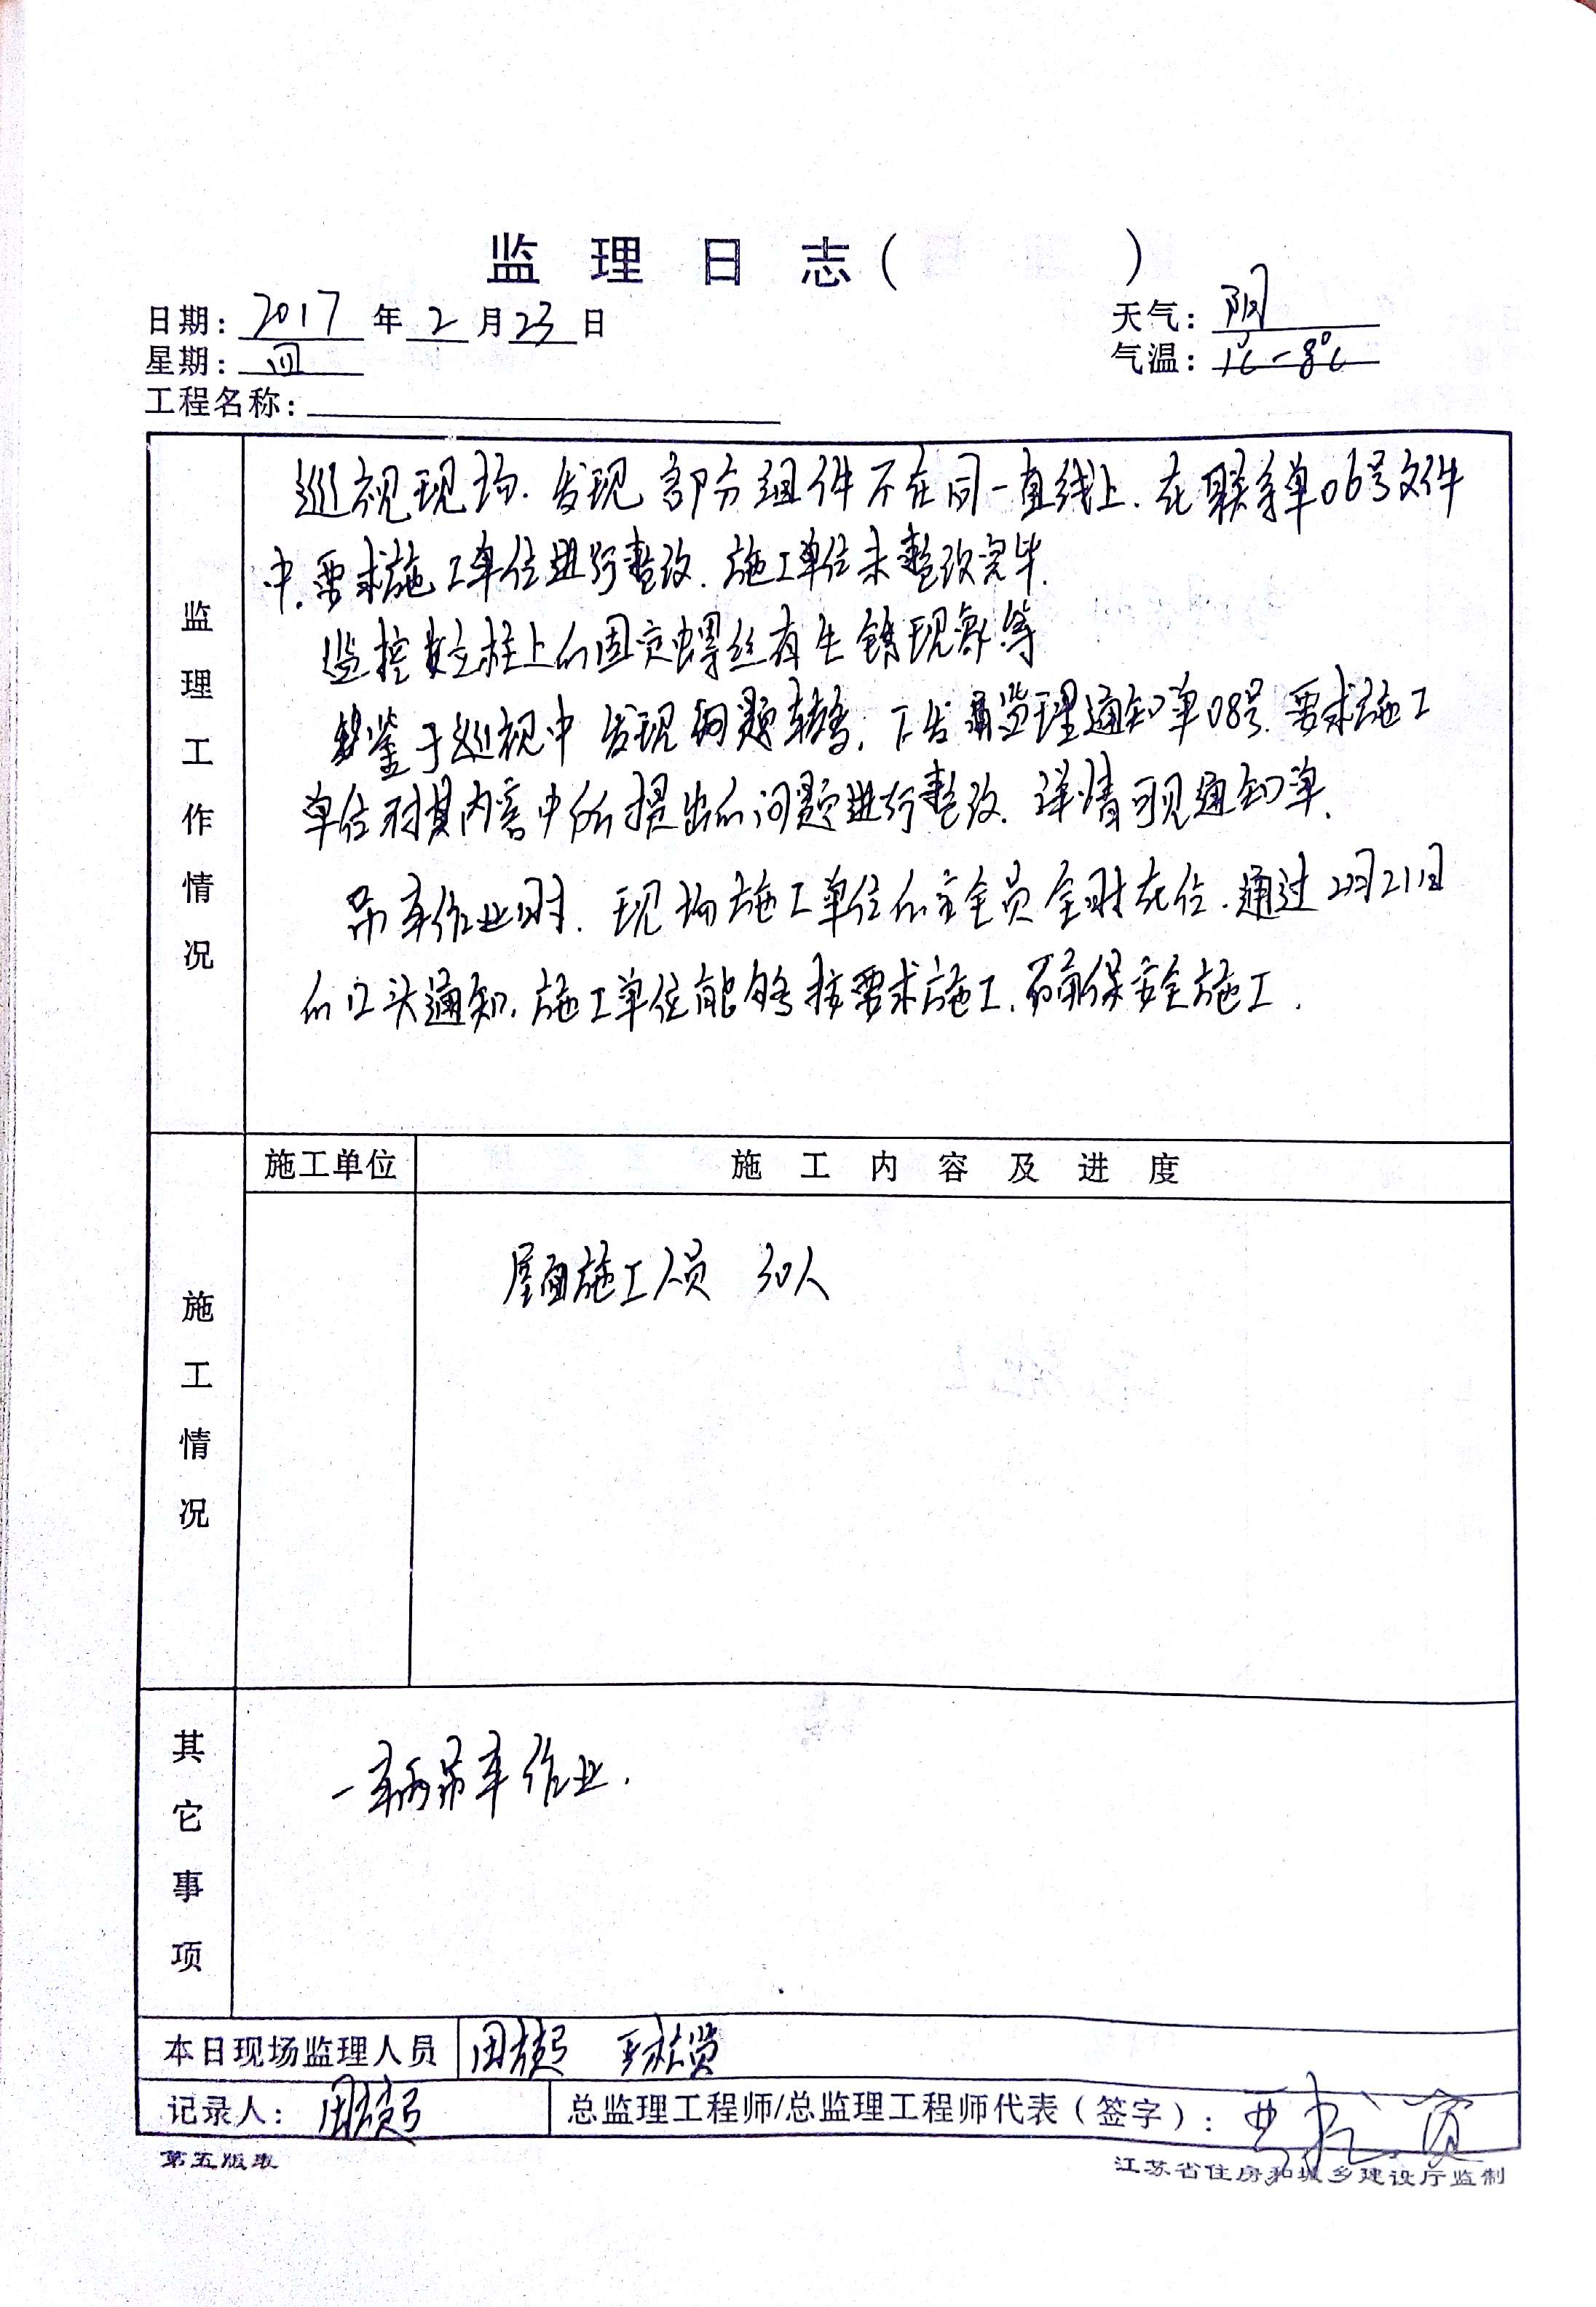 监理日志( )
日期: 2017 年 2 月 23 日 天气: 阴
星期: 四 气温: 1℃-8℃
工程名称:
监理工作情况
巡视现场.发现部分组件不在同一直线上.在联系单06号文件
中.要求施工单位进行整改.施工单位未整改完毕.
监控立柱上的固定螺丝有生锈现象等
鉴于巡视中发现问题较多,下发监理通知单08号.要求施工
单位对其内容中所提出的问题进行整改.详情可见通知单.
吊车作业时.现场施工单位的安全员全时在位.通过2月21日
的口头通知.施工单位能够按要求施工.确保安全施工.
施工情况
施工单位 施工内容及进度
屋面施工人员 30人
其它事项
一辆吊车作业.
本日现场监理人员
记录人: 总监理工程师/总监理工程师代表(签字):
第五版表 江苏省住房和城乡建设厅监制